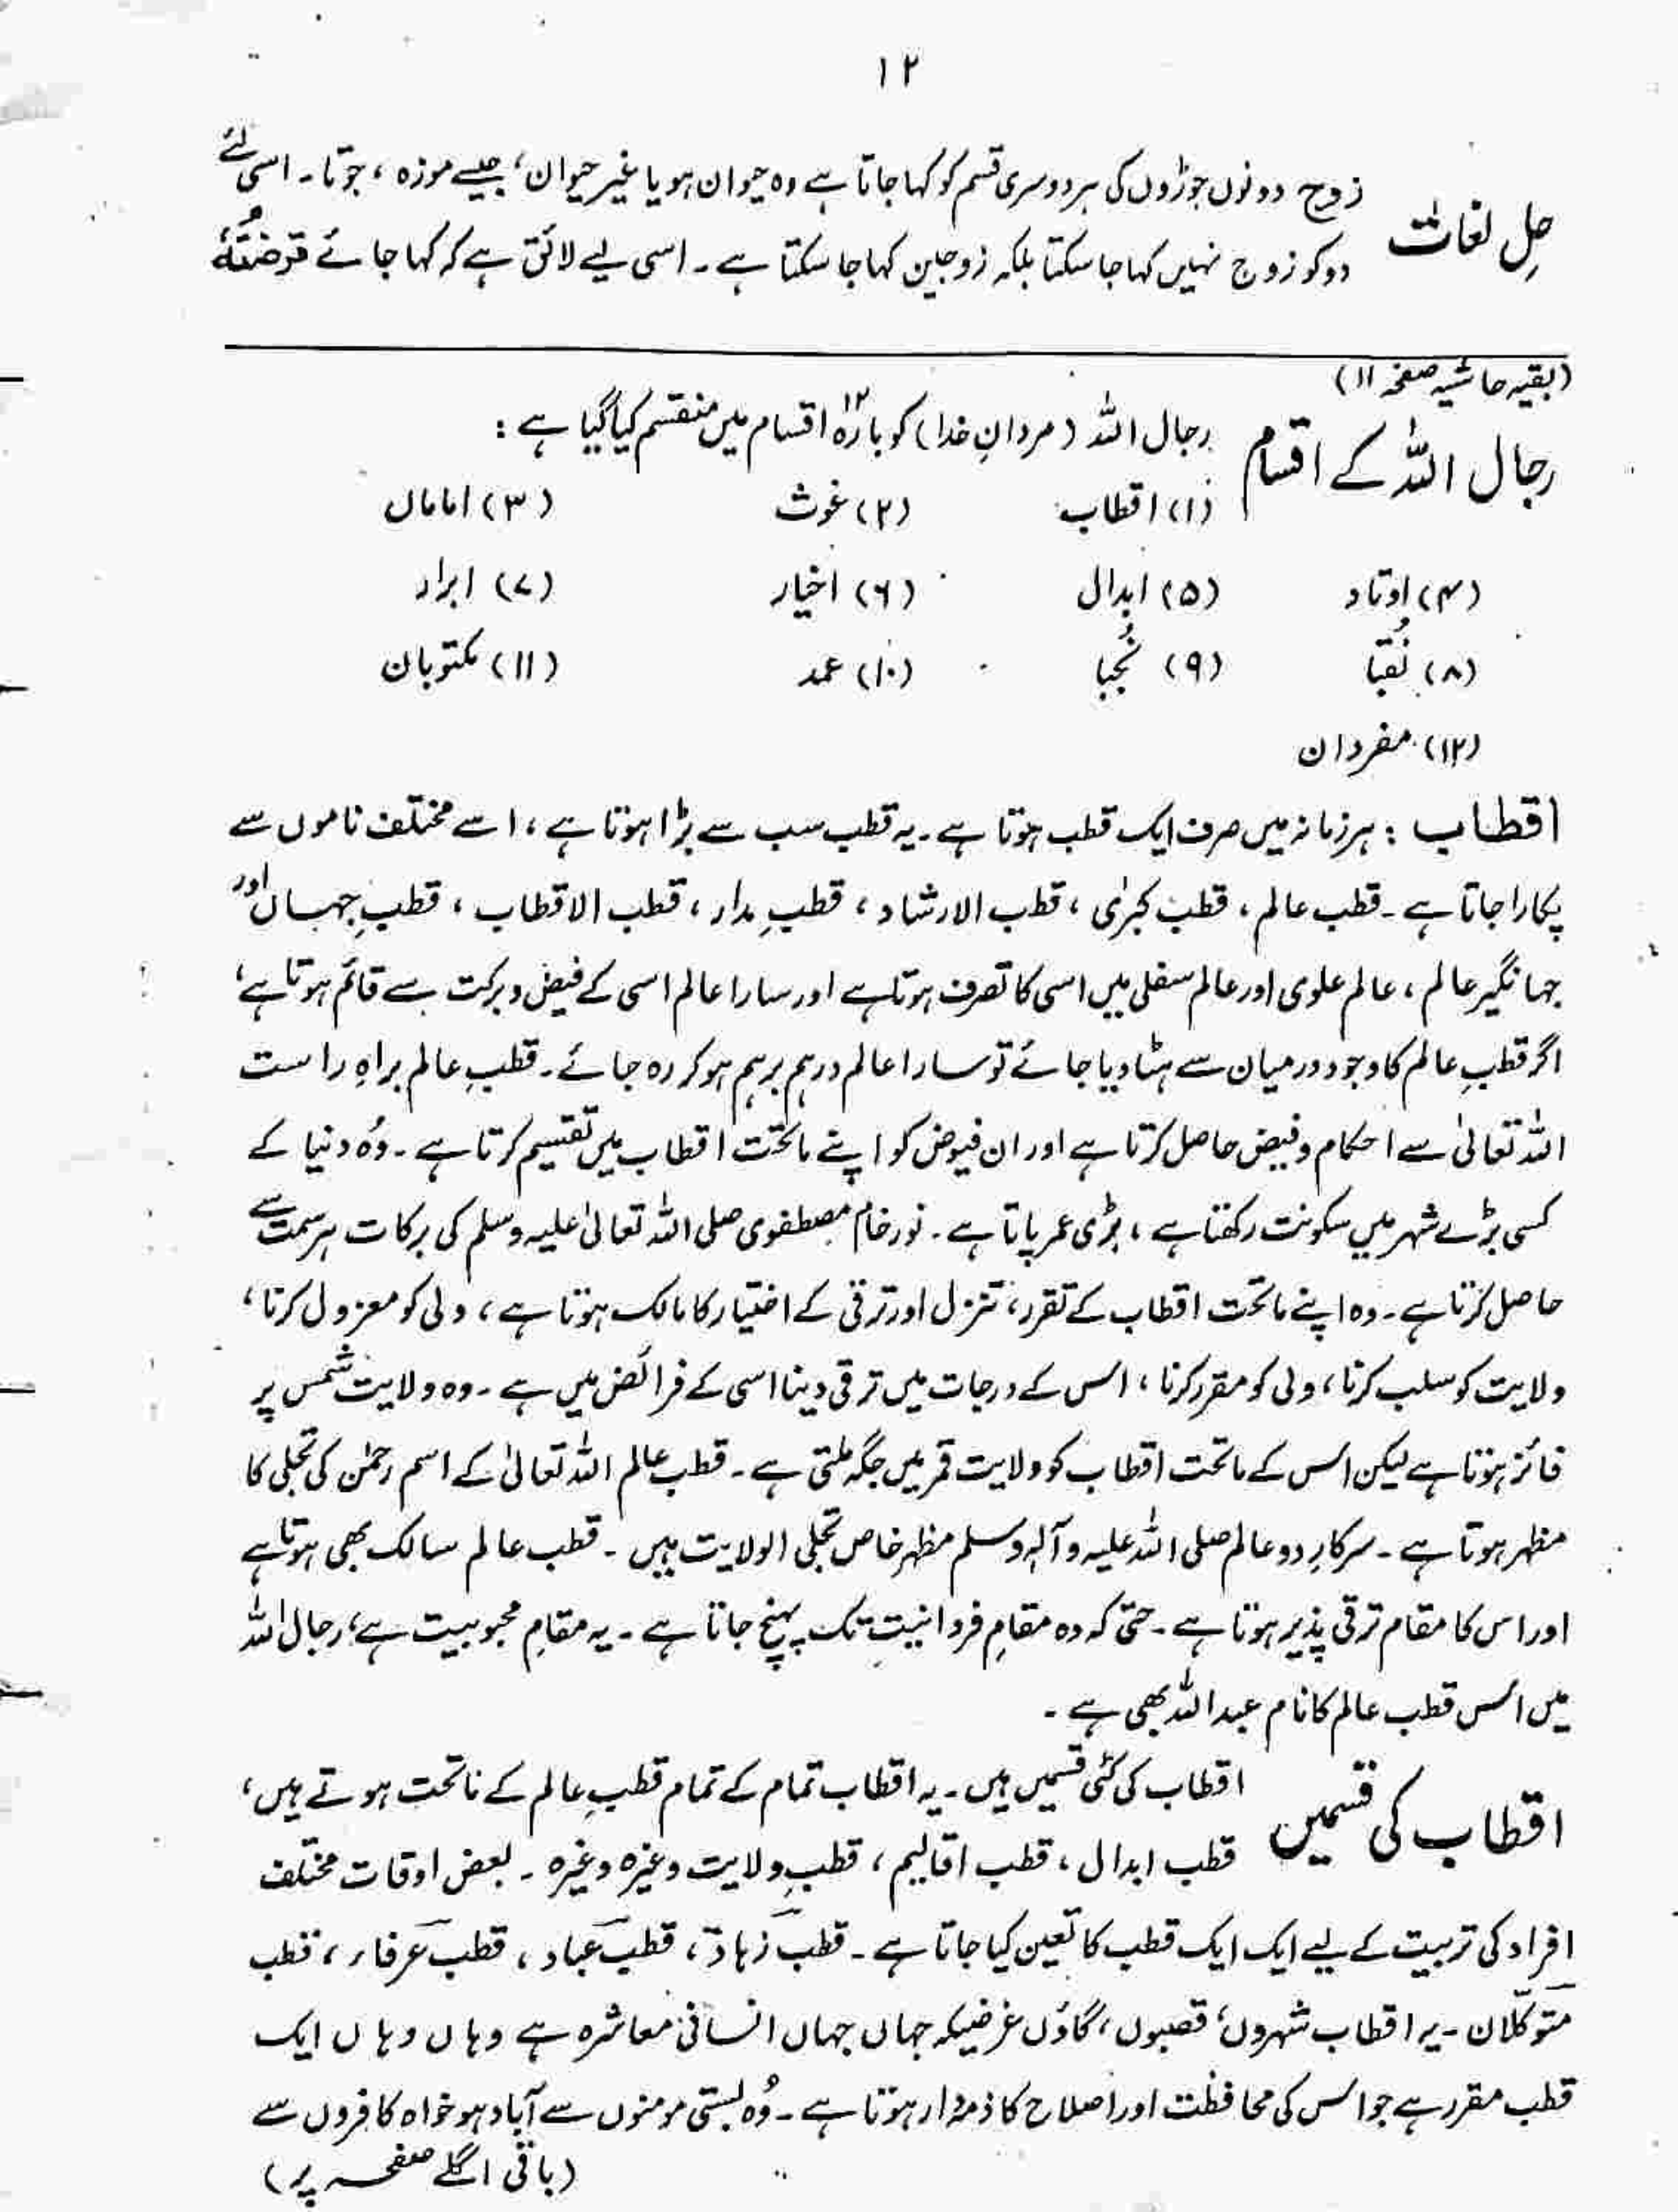 ۱۲
حلِ لغات
زوج دونوں جوڑوں کی ہر دوسری قسم کو کہا جاتا ہے وہ حیوان ہو یا غیر حیوان، جیسے موزہ، جوتا۔ اسی لئے
دو کو زوج نہیں کہا جا سکتا بلکہ زوجین کہا جا سکتا ہے۔ اسی لیے لائق ہے کہ کہا جائے
(بقیہ حاشیہ صفحہ ۱۱)
رجال اللہ کے اقسام
رجال اللہ (مردانِ خدا) کو بارہ ۱۲ اقسام میں منقسم کیا گیا ہے :
(۱) اقطاب (۲) غوث (۳) امامان
(۴) اوتاد (۵) ابدال (۶) اخیار (۷) ابرار
(۸) نُقبا (۹) نُجبا (۱۰) عمد (۱۱) مکتوبان
(۱۲) مفردان
اقطاب : ہر زمانہ میں صرف ایک قطب ہوتا ہے۔ یہ قطب سب سے بڑا ہوتا ہے، اسے مختلف ناموں سے
پکارا جاتا ہے۔ قطب عالم، قطب کبریٰ، قطب الارشاد، قطبِ مدار، قطب الاقطاب، قطبِ جہاں اور
جہانگیر عالم، عالم علوی اور عالم سفلی میں اسی کا تصرف ہوتا ہے اور سارا عالم اسی کے فیض و برکت سے قائم ہوتا ہے،
اگر قطبِ عالم کا وجود درمیان سے ہٹا دیا جائے تو سارا عالم درہم برہم ہو کر رہ جائے۔ قطبِ عالم براہِ راست
اللہ تعالیٰ سے احکام و فیض حاصل کرتا ہے اور ان فیوض کو اپنے ماتحت اقطاب میں تقسیم کرتا ہے۔ وُہ دنیا کے
کسی بڑے شہر میں سکونت رکھتا ہے، بڑی عمر پاتا ہے۔ نور خام مصطفوی صلی اللہ تعالیٰ علیہ وسلم کی برکات ہر سمت سے
حاصل کرتا ہے۔ وہ اپنے ماتحت اقطاب کے تقرر، تنزل اور ترقی کے اختیار کا مالک ہوتا ہے، ولی کو معزول کرنا،
ولایت کو سلب کرنا، ولی کو مقرر کرنا، اس کے درجات میں ترقی دینا اسی کے فرائض میں ہے۔ وہ ولایت شمس پر
فائز ہوتا ہے لیکن اس کے ماتحت اقطاب کو ولایت قمر میں جگہ ملتی ہے۔ قطب عالم اللہ تعالیٰ کے اسم رحمٰن کی تجلی کا
مظہر ہوتا ہے۔ سرکارِ دو عالم صلی اللہ علیہ وآلہٖ وسلم مظہر خاص تجلی الولایت ہیں۔ قطب عالم سالک بھی ہوتا ہے
اور اس کا مقام ترقی پذیر ہوتا ہے۔ حتی کہ وہ مقامِ فردانیت تک پہنچ جاتا ہے۔ یہ مقامِ محبوبیت ہے، رجال اللہ
میں اس قطب عالم کا نام عبداللہ بھی ہے۔
اقطاب کی قسمیں
اقطاب کی کئی قسمیں ہیں۔ یہ اقطاب تمام کے تمام قطبِ عالم کے ماتحت ہوتے ہیں،
قطب ابدال، قطب اقالیم، قطبِ ولایت وغیرہ وغیرہ۔ بعض اوقات مختلف
افراد کی تربیت کے لیے ایک ایک قطب کا تعین کیا جاتا ہے۔ قطب زہاد، قطب عباد، قطب عرفاء، قطب
متوکلان۔ یہ اقطاب شہروں، قصبوں، گاؤں غرضیکہ جہاں جہاں انسانی معاشرہ ہے وہاں وہاں ایک
قطب مقرر ہے جو اس کی محافظت اور اصلاح کا ذمہ دار ہوتا ہے۔ وُہ بستی مومنوں سے آباد ہو خواہ کافروں سے
(باقی اگلے صفحہ پر)